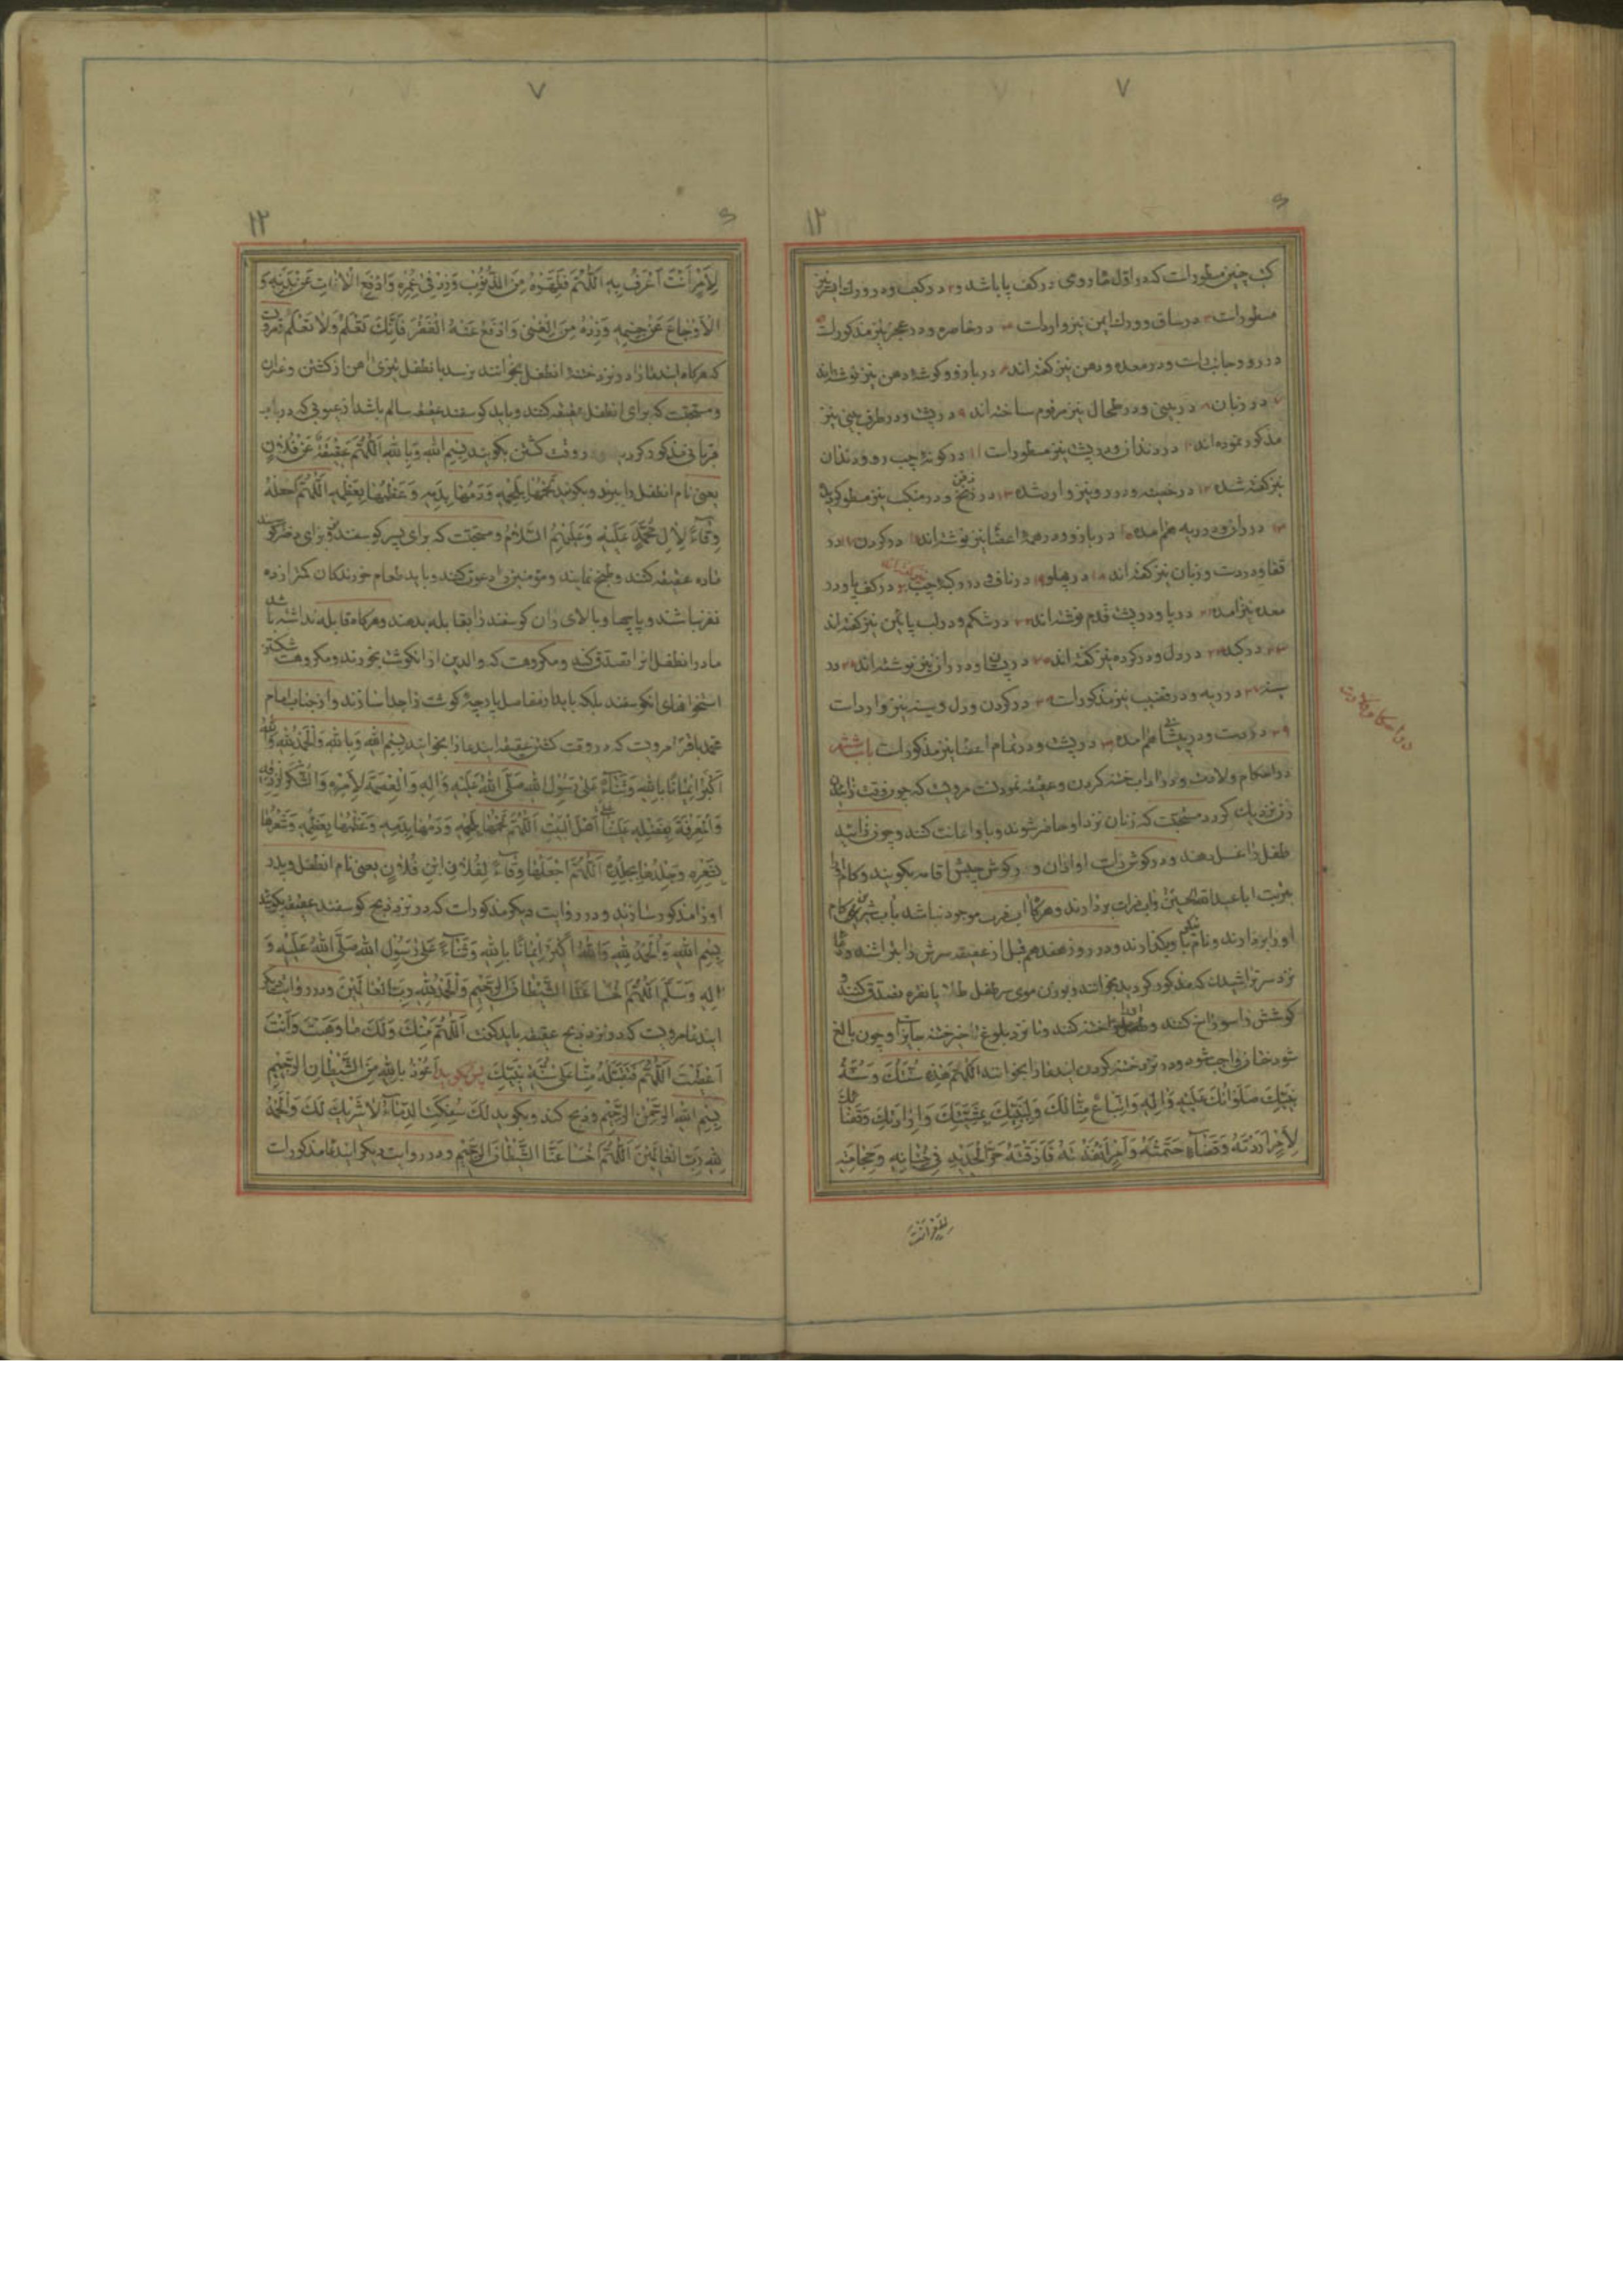 ٧
١٢
کتب چنین مسطورات که در اول ماه روی در کف پا باشد و ٢ در کعب و در ورک ایمن نیز
مسطورات ٣ در ساق و ورک ایمن نیز واردات ٤ در خاصره و در عجز نیز مذکورات
در رو و جانب راست و در معده و دهن نیز گفته‌اند در بازو و گوشه دهن نیز نوشته‌اند
در زبان ٨ در بینی و در طحال نیز مرقوم ساخته‌اند ٩ در پشت و در طرف بینی نیز
مذکور نموده‌اند ١٠ در دندان و در پشت نیز مسطورات ١١ در گونه چپ رو و دندان
نیز گفته شده ١٢ در خصیه و در رو نیز وارد شده ١٣ در زنخ و در منکب نیز مسطور
در ران و در ریه هم آمده ١٥ در بازو و در همه اعضا نیز نوشته‌اند ١٦ در گردن ١٧ در
قفا و در دست و زبان نیز گفته‌اند ١٨ در پهلو ١٩ در ناف و در رو کبد چپ ٢٠ در کف پا و در
معده نیز آمده ٢١ در پا و در پشت قدم نوشته‌اند ٢٢ در شکم و در لب پائین نیز گفته‌اند
٢٣ در کبد ٢٤ در دل و در گرده نیز گفته‌اند ٢٥ در پستان و در ران نیز نوشته‌اند ٢٦ در
سینه ٢٧ در ریه و در قضیب نیز مذکورات ٢٨ در گردن و دل و سینه نیز واردات
٢٩ در دست و در پیشانی هم آمده ٣٠ در پشت و در تمام اعضا نیز مذکورات باب ششم
در احکام ولادت و در آداب ختنه کردن و عقیقه نمودنست مرویست که چون وقت زائیدن
زن نزدیک گردد مستحبت که زنان نزد او حاضر شوند و با او اعانت کنند و چون زائید
طفل را غسل دهند و در گوش راست او اذان و در گوش چپش اقامه بگویند و کام او را
بتربت اباعبدالله الحسین و آب فرات بردارند و هرگاه آب فرات موجود نباشد بآب شیرین کام
او را بردارند و نام نیکی باو بگذارند و در روز هفتم هم قبل از عقیقه سرش را بتراشند و دعا
نزد سر تراشیدن که مذکور گردید بخوانند و بوزن موی سر طفل طلا یا نقره تصدق کنند
گوشش را سوراخ کنند و ختنه کنند و تا نزد بلوغ تأخیر ختنه جایز و چون بالغ
شود ختان واجب شود و در نزد ختنه کردن ایندعا را بخوانند اَللّهُمَّ هذِهِ سُنَّتُکَ وَ سُنَّةُ
نَبِیِّکَ صَلَوَاتُکَ عَلَیْهِ وَ آلِهِ وَ اتِّبَاعٌ مِنَّا لَکَ وَ لِنَبِیِّکَ بِمَشِیَّتِکَ وَ اِرَادَتِکَ وَ قَضَائِکَ
لِاَمْرٍ اَرَدْتَهُ وَ قَضَاءٍ حَتَمْتَهُ وَ اَمْرٍ اَنْفَذْتَهُ فَاَذَقْتَهُ حَرَّ الْحَدِیدِ فِی خِتَانِهِ وَ حِجَامَتِهِ
در احکام ولادت
٧
١٢
لِاَمْرٍ اَنْتَ اَعْرَفُ بِهِ اَللّهُمَّ فَطَهِّرْهُ مِنَ الذُّنُوبِ وَ زِدْ فِی عُمُرِهِ وَ ادْفَعِ الْآفَاتِ عَنْ بَدَنِهِ وَ
الْاَوْجَاعَ عَنْ جِسْمِهِ وَ زِدْهُ مِنَ الْغِنَی وَ ادْفَعْ عَنْهُ الْفَقْرَ فَاِنَّکَ تَعْلَمُ وَ لَا نَعْلَمُ
که هرگاه ایندعا را در نزد ختنه آنطفل بخوانند نرسد بآنطفل تیزی آهن از کشتن و غیر آن
و مستحبت که برای آنطفل عقیقه کنند و باید گوسفند عقیقه سالم باشد از عیوبی که در باب
قربانی مذکور گردید در وقت کشتن بگویند بِسْمِ اللهِ وَ بِاللهِ اَللّهُمَّ عَقِیقَةٌ عَنْ فُلَانٍ
یعنی نام آنطفل را ببرند و بگویند لَحْمُهَا بِلَحْمِهِ وَ دَمُهَا بِدَمِهِ وَ عَظْمُهَا بِعَظْمِهِ اَللّهُمَّ اجْعَلْهُ
وِقَاءً لِآلِ مُحَمَّدٍ عَلَیْهِ وَ عَلَیْهِمُ السَّلَامُ و مستحبت که برای پسر گوسفند نر و برای دختر گوسفند
ماده عقیقه کنند و طبخ نمایند و مؤمنین را دعوت کنند و باید طعام خورندگان کمتر از ده
نفر نباشند و پاچها و بالای ران گوسفند را بقابله بدهند و هرگاه قابله نداشته باشد
مادر آنطفل آنرا تصدق کند و مکروهست که والدین از آن گوشت بخورند و مکروهست شکستن
استخوانهای آن گوسفند بلکه باید از مفاصل پارچه گوشت را جدا سازند و از جناب امام
محمد باقر مرویست که در وقت کشتن عقیقه ایندعا را بخوانید بِسْمِ اللهِ وَ بِاللهِ وَ الْحَمْدُ لِلّهِ وَ اللهُ
اَکْبَرُ اِیمَانًا بِاللهِ وَ ثَنَاءً عَلَی رَسُولِ اللهِ صَلَّی اللهُ عَلَیْهِ وَ آلِهِ وَ الْعِصْمَةُ لِاَمْرِهِ وَ الشُّکْرُ لِرِزْقِهِ
وَ الْمَعْرِفَةُ بِفَضْلِهِ عَلَیْنَا اَهْلَ الْبَیْتِ اَللّهُمَّ لَحْمُهَا بِلَحْمِهِ وَ دَمُهَا بِدَمِهِ وَ عَظْمُهَا بِعَظْمِهِ وَ شَعْرُهَا
بِشَعْرِهِ وَ جِلْدُهَا بِجِلْدِهِ اَللّهُمَّ اجْعَلْهَا وِقَاءً لِفُلَانِ ابْنِ فُلَانٍ یعنی نام آنطفل و پدر
او را مذکور سازند و در روایت دیگر مذکورات که در نزد ذبح گوسفند عقیقه بگویند
بِسْمِ اللهِ وَ الْحَمْدُ لِلّهِ وَ اللهُ اَکْبَرُ اِیمَانًا بِاللهِ وَ ثَنَاءً عَلَی رَسُولِ اللهِ صَلَّی اللهُ عَلَیْهِ وَ
آلِهِ وَ سَلَّمَ اَللّهُمَّ اخْسَأْ عَنَّا الشَّیْطَانَ الرَّجِیمَ وَ الْحَمْدُ لِلّهِ رَبِّ الْعَالَمِینَ و در روایت دیگر
ایندعا مرویست که در نزد ذبح عقیقه باید گفت اَللّهُمَّ مِنْکَ وَ لَکَ مَا وَهَبْتَ وَ اَنْتَ
اَعْطَیْتَ اَللّهُمَّ فَتَقَبَّلْهُ مِنَّا عَلَی سُنَّةِ نَبِیِّکَ پس بگوید اَعُوذُ بِاللهِ مِنَ الشَّیْطَانِ الرَّجِیمِ
بِسْمِ اللهِ الرَّحْمنِ الرَّحِیمِ و ذبح کند و بگوید لَکَ سُفِکَتِ الدِّمَاءُ لَا شَرِیکَ لَکَ وَ الْحَمْدُ
لِلّهِ رَبِّ الْعَالَمِینَ اَللّهُمَّ اخْسَأْ عَنَّا الشَّیْطَانَ الرَّجِیمَ و در روایت دیگر ایندعا مذکورات